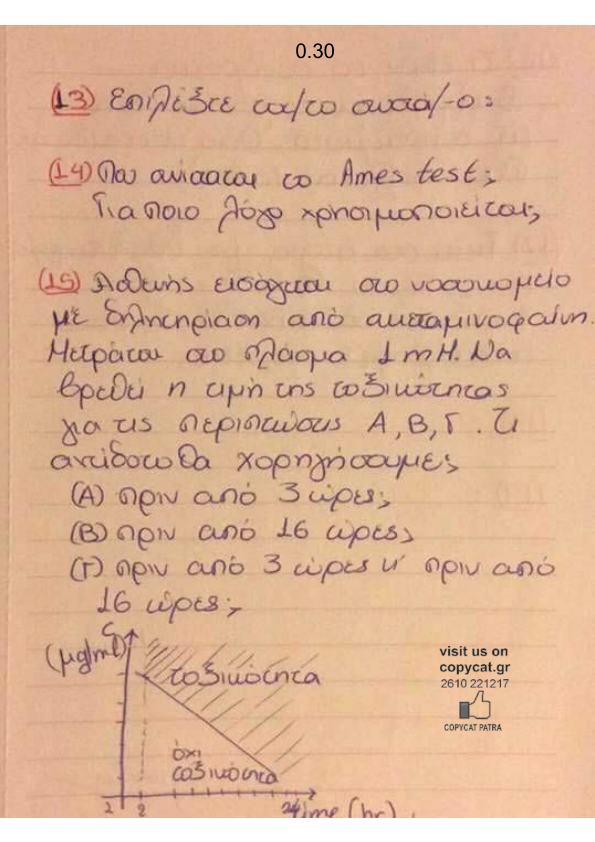 0.30
(13) Επιλέξτε τα/το σωστά/-ο:
(14) Που ανιχνεύεται το Ames test;
Για ποιο λόγο χρησιμοποιείται;
(15) Ασθενής εισάγεται στο νοσοκομείο
με δηλητηρίαση από ακεταμινοφαίνη.
Μετράται στο πλάσμα 1 mM. Να
βρεθεί η τιμή της τοξικότητας
για τις περιπτώσεις Α, Β, Γ. Τι
αντίδοτο θα χορηγήσουμε;
(Α) πριν από 3 ώρες;
(Β) πριν από 16 ώρες;
(Γ) πριν από 3 ώρες κ' πριν από
16 ώρες;
C
(μg/ml)
τοξικότητα
όχι
τοξικότητα
1 2 24 time (hr)
visit us on
copycat.gr
2610 221217
COPYCAT PATRA